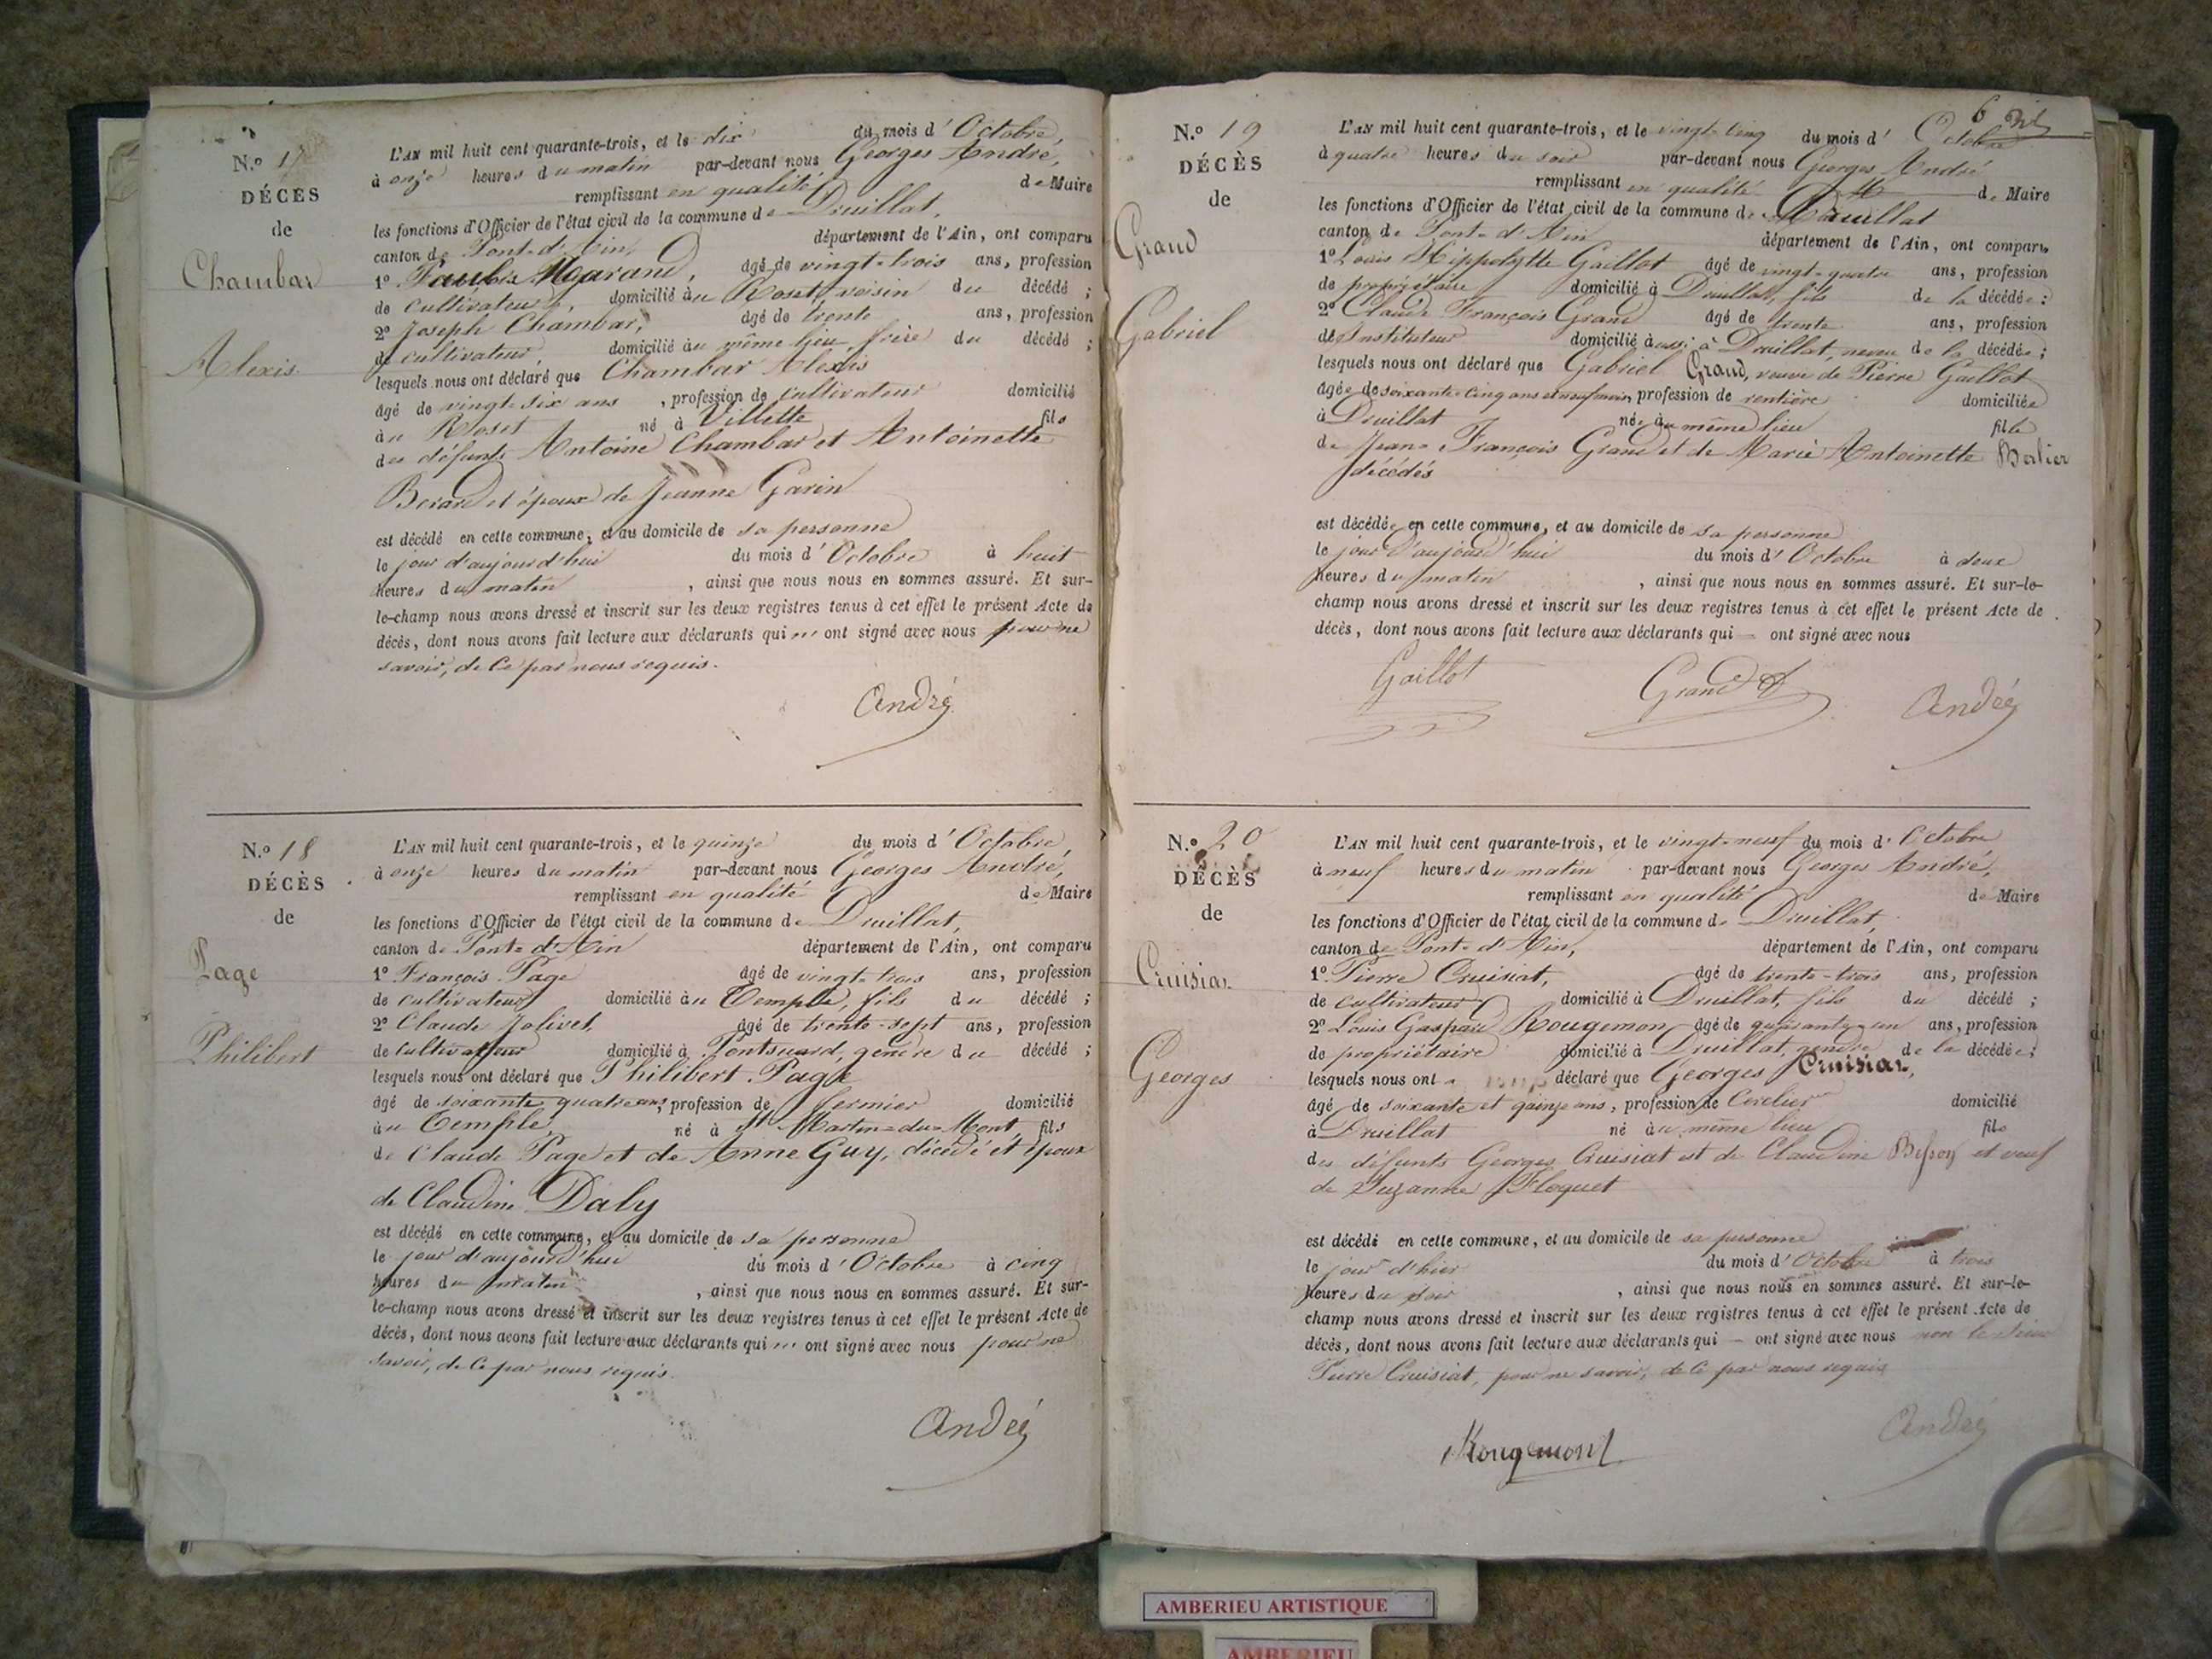 N.o 17
DÉCÈS
de
Chambar
Alexis
L'AN mil huit cent quarante-trois, et le dix du mois d'Octobre,
à onze heures du matin par-devant nous Georges André,
remplissant en qualité de Maire
les fonctions d'Officier de l'état civil de la commune de Druillat,
canton de Pont-d'Ain, département de l'Ain, ont comparu
1o Marand, âgé de vingt-trois ans, profession
de cultivateur, domicilié au Roset, voisin du décédé ;
2o Joseph Chambar, âgé de trente ans, profession
de cultivateur, domicilié au même lieu, frère du décédé ;
lesquels nous ont déclaré que Chambar Alexis
âgé de vingt-six ans, profession de cultivateur domicilié
au Roset né à Villette fils
des défunts Antoine Chambar et Antoinette
Berard et époux de Jeanne Garin
est décédé en cette commune, et au domicile de sa personne
le jour d'aujourd'hui du mois d'Octobre à huit
heures du matin, ainsi que nous nous en sommes assuré. Et sur-
le-champ nous avons dressé et inscrit sur les deux registres tenus à cet effet le présent Acte de
décès, dont nous avons fait lecture aux déclarants qui n'ont signé avec nous pour ne
savoir, de ce par nous requis.
André
N.o 18
DÉCÈS
de
Page
Philibert
L'AN mil huit cent quarante-trois, et le quinze du mois d'Octobre,
à onze heures du matin par-devant nous Georges André,
remplissant en qualité de Maire
les fonctions d'Officier de l'état civil de la commune de Druillat,
canton de Pont-d'Ain département de l'Ain, ont comparu
1o François Page âgé de vingt-trois ans, profession
de cultivateur domicilié au Temple, fils du décédé ;
2o Claude Jolivet, âgé de trente-sept ans, profession
de cultivateur domicilié à gendre du décédé ;
lesquels nous ont déclaré que Philibert Page
âgé de soixante quatre ans, profession de fermier domicilié
au Temple, né à St Martin-du-Mont, fils
de Claude Page et de Anne Guy, décédé et époux
de Claudine Daly
est décédé en cette commune, et au domicile de sa personne
le jour d'aujourd'hui du mois d'Octobre à cinq
heures du matin, ainsi que nous nous en sommes assuré. Et sur-
le-champ nous avons dressé et inscrit sur les deux registres tenus à cet effet le présent Acte de
décès, dont nous avons fait lecture aux déclarants qui n'ont signé avec nous pour ne
savoir, de ce par nous requis.
André
6
N.o 19
DÉCÈS
de
Grand
Gabriel
L'AN mil huit cent quarante-trois, et le vingt-cinq du mois d'Octobre
à quatre heures du soir par-devant nous Georges André
remplissant en qualité de Maire
les fonctions d'Officier de l'état civil de la commune de Druillat
canton de Pont-d'Ain département de l'Ain, ont comparu
1o Louis Hippolytte Gaillot âgé de vingt-quatre ans, profession
de propriétaire domicilié à Druillat, fils de la décédée ;
2o Claude François Grand âgé de trente ans, profession
de Instituteur domicilié aussi à Druillat, neveu de la décédée ;
lesquels nous ont déclaré que Gabriel Grand, veuve de Pierre Gaillot
âgée de soixante-cinq ans et neuf mois, profession de rentière domiciliée
à Druillat née au même lieu fille
de Jean-François Grand et de Marie Antoinette Berlier
décédés
est décédée en cette commune, et au domicile de sa personne
le jour d'aujourd'hui du mois d'Octobre à deux
heures du matin, ainsi que nous nous en sommes assuré. Et sur-le-
champ nous avons dressé et inscrit sur les deux registres tenus à cet effet le présent Acte de
décès, dont nous avons fait lecture aux déclarants qui — ont signé avec nous
Gaillot Grand André
N.o 20
DÉCÈS
de
Cruisiat
Georges
L'AN mil huit cent quarante-trois, et le vingt-neuf du mois d'Octobre
à neuf heures du matin par-devant nous Georges André,
remplissant en qualité de Maire
les fonctions d'Officier de l'état civil de la commune de Druillat,
canton de Pont-d'Ain, département de l'Ain, ont comparu
1o Pierre Cruisiat, âgé de trente-trois ans, profession
de cultivateur domicilié à Druillat, fils du décédé ;
2o Louis Gaspard Rougemon âgé de quarante-un ans, profession
de propriétaire domicilié à Druillat, gendre de la décédée ;
lesquels nous ont déclaré que Georges Cruisiat,
âgé de soixante et quinze ans, profession de Cerclier domicilié
à Druillat né au même lieu fils
des défunts Georges Cruisiat et de Claudine Besson et veuf
de Suzanne Floquet
est décédé en cette commune, et au domicile de sa personne
le jour d'hier du mois d'Octobre à trois
heures du soir, ainsi que nous nous en sommes assuré. Et sur-le-
champ nous avons dressé et inscrit sur les deux registres tenus à cet effet le présent Acte de
décès, dont nous avons fait lecture aux déclarants qui — ont signé avec nous non le sieur
Pierre Cruisiat, pour ne savoir, de ce par nous requis
Rougemont André
AMBERIEU ARTISTIQUE
AMBERIEU